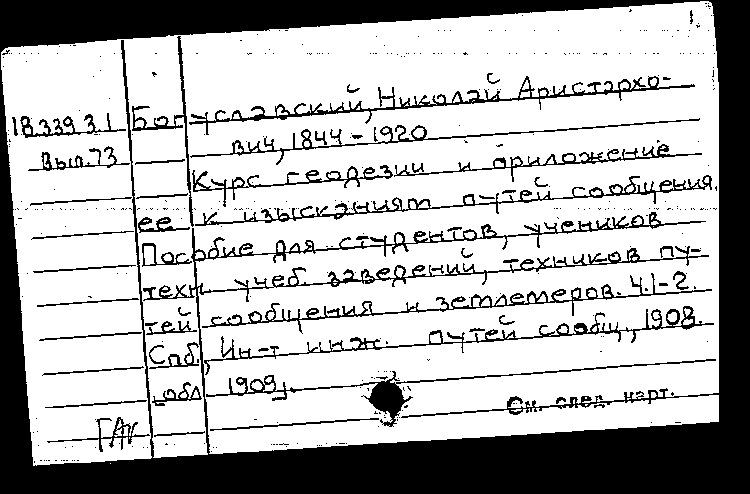 1.
18.339.3.1 Богуславский, Николай Аристархо-
Вып.73 вич, 1844-1920
Курс геодезии и приложение
ее к изысканиям путей сообщения.
Пособие для студентов, учеников
техн. учеб. заведений, техников пу-
тей сообщения и землемеров. Ч.1-2.
Спб., Ин-т инж. путей сообщ., 1908.
[обл. 1909].
См. след. карт.